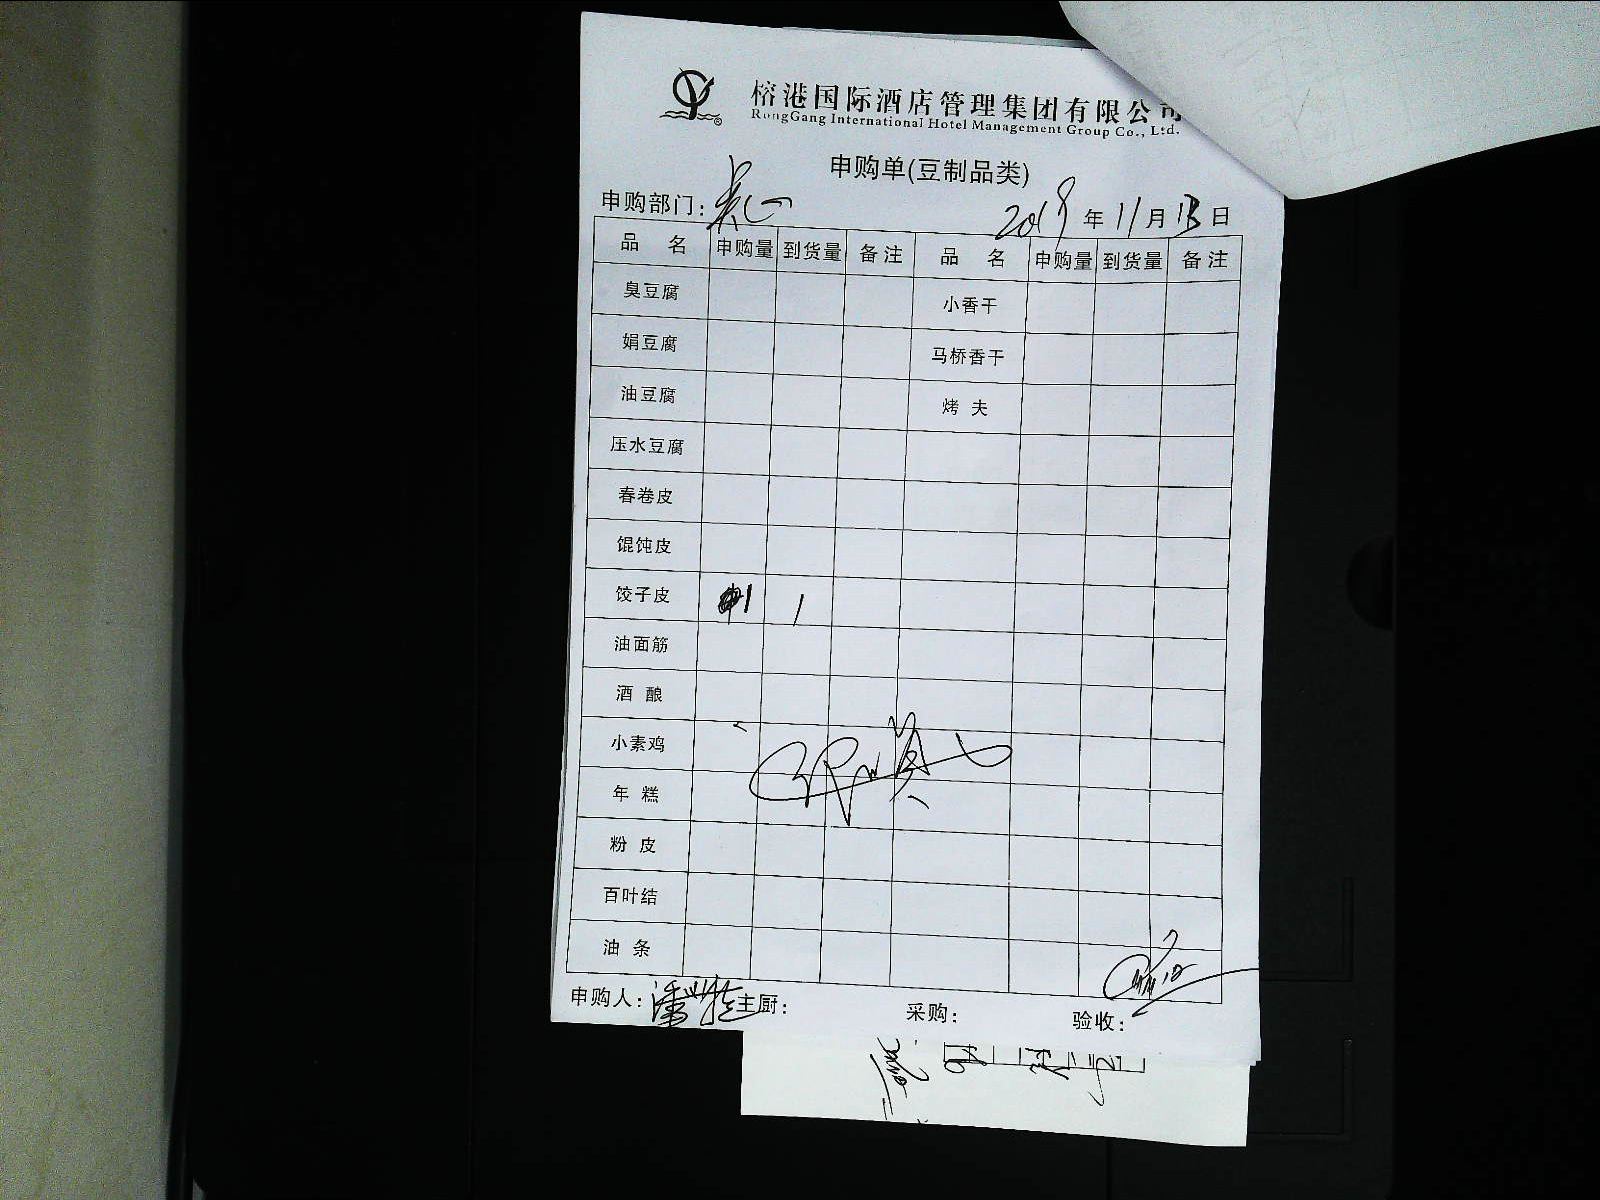 榕港国际酒店管理集团有限公司
RongGang International Hotel Management Group Co., Ltd.
申购单(豆制品类)
申购部门: 2019年11月13日
品名 申购量 到货量 备注 品名 申购量 到货量 备注
臭豆腐 小香干
娟豆腐 马桥香干
油豆腐 烤夫
压水豆腐
春卷皮
馄饨皮
饺子皮 1 1
油面筋
酒酿
小素鸡
年糕
粉皮
百叶结
油条
申购人: 主厨: 采购: 验收: